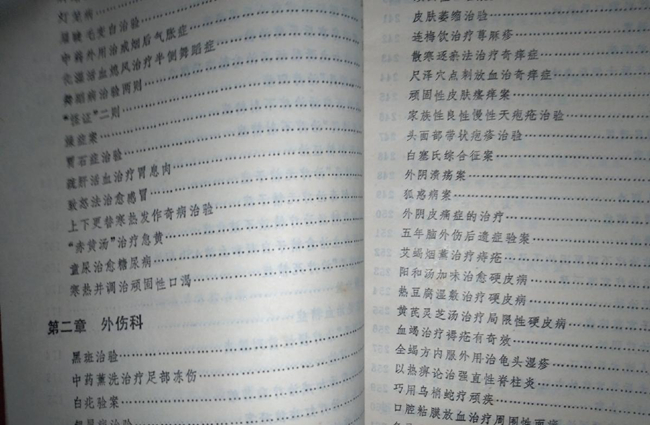 灯笼病
眉睫毛变白治验
中药外用治戒烟后气胀症
化湿活血熄风治疗半侧舞蹈症
舞蹈病治验两则
“怪证”二则
癫症案
胃石症治验
疏肝活血治疗胃息肉
敏怒法治愈感冒
上下更替寒热发作奇病治验
“赤黄汤”治疗急黄
童尿治愈糖尿病
寒热并调治顽固性口渴
第二章 外伤科
黑斑治验
中药薰洗治疗足部冻伤
白疕验案
皮肤萎缩治验
连梅饮治疗荨麻疹
散寒逐瘀法治疗奇痒症
尺泽穴点刺放血治奇痒症
顽固性皮肤瘙痒案
家族性良性慢性天疱疮治验
头面部带状疱疹治验
白塞氏综合征案
外阴溃疡案
狐惑病案
外阴皮痛症的治疗
五年脑外伤后遗症验案
艾蝎烟薰治疗痔疮
阳和汤加味治愈硬皮病
热豆腐湿敷治疗硬皮病
黄芪灵芝汤治疗局限性硬皮病
血蝎治疗褥疮有奇效
全蝎方内服外用治龟头湿疹
以热痹论治强直性脊柱炎
巧用乌梢蛇疗顽疾
口腔粘膜放血治疗周围性面瘫